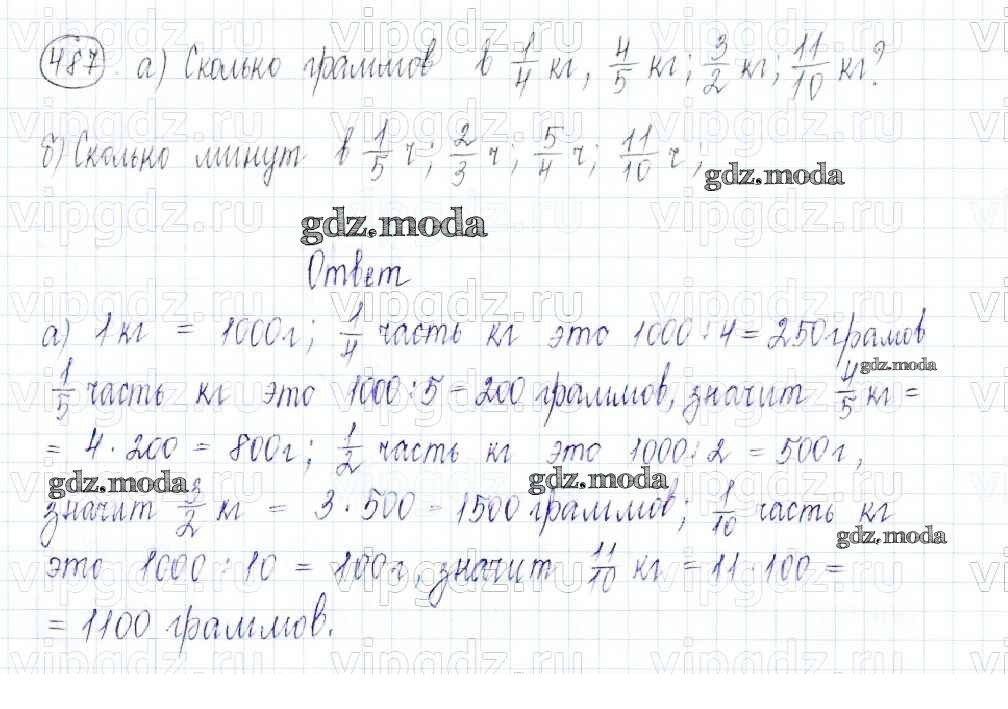 487 а) Сколько граммов в 1/4 кг, 4/5 кг; 3/2 кг; 11/10 кг?
б) Сколько минут в 1/5 ч; 2/3 ч; 5/4 ч; 11/10 ч;
gdz.moda
gdz.moda
Ответ
а) 1 кг = 1000г; 1/4 часть кг это 1000:4=250грамов
gdz.moda
1/5 часть кг это 1000:5=200 граммов, значит 4/5 кг =
= 4·200 = 800г; 1/2 часть кг это 1000:2 = 500г,
gdz.moda gdz.moda
значит 3/2 кг = 3·500 = 1500 граммов; 1/10 часть кг
gdz.moda
это 1000:10 = 100г, значит 11/10 кг = 11·100 =
= 1100 граммов.
gdz.moda
vipgdz.ru vipgdz.ru vipgdz.ru vipgdz.ru